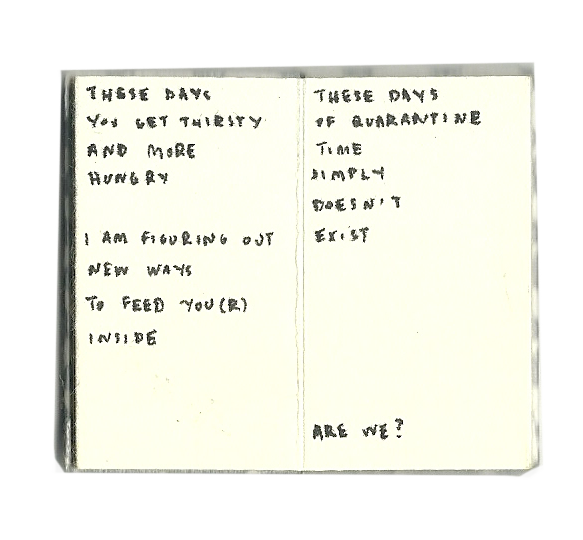 THESE DAYS
YOU GET THIRSTY
AND MORE
HUNGRY
I AM FIGURING OUT
NEW WAYS
TO FEED YOU(R)
INSIDE
THESE DAYS
OF QUARANTINE
TIME
SIMPLY
DOESN'T
EXIST
ARE WE?